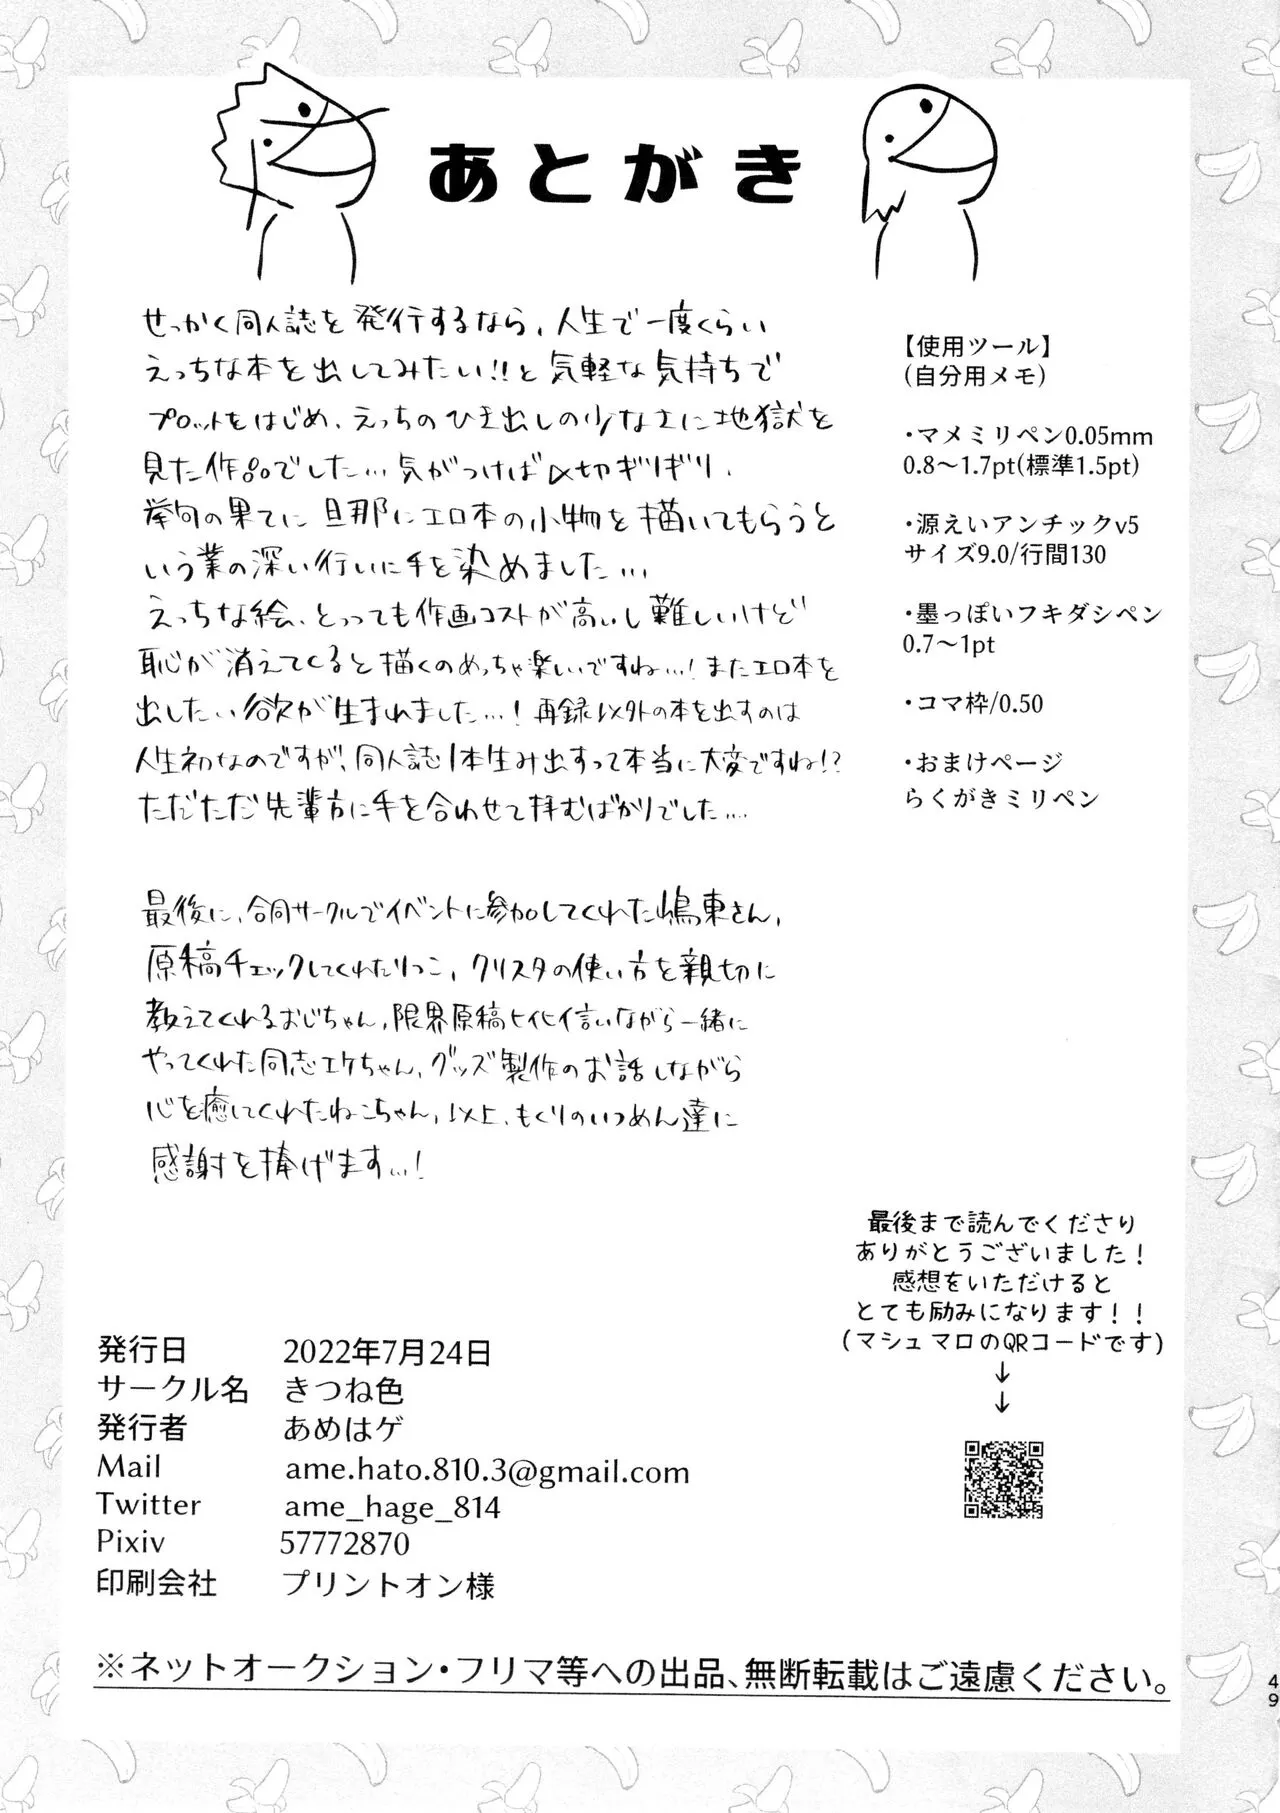 あとがき
せっかく同人誌を発行するなら、人生で一度くらい
えっちな本を出してみたい!!と気軽な気持ちで
プロットをはじめ、えっちのひき出しの少なさに地獄を
見た作品でした…気がつけば〆切ギリギリ、
挙句の果てに旦那にエロ本の小物を描いてもらうと
いう業の深い行いに手を染めました…
えっちな絵、とっっても作画コストが高いし難しいけど
恥が消えてくると描くのめっちゃ楽しいですね…!またエロ本を
出したい欲が生まれました…!再録以外の本を出すのは
人生初なのですが、同人誌1本生み出すって本当に大変ですね!?
ただただ先輩方に手を合わせて拝むばかりでした…
最後に、合同サークルでイベントに参加してくれた嶋東さん、
原稿チェックしてくれたりっこ、クリスタの使い方を親切に
教えてくれるおじちゃん、限界原稿ヒイヒイ言いながら一緒に
やってくれた同志エケちゃん、グッズ製作のお話しながら
心を癒してくれたねこちゃん、以上、もくりのいつめん達に
感謝を捧げます…!
【使用ツール】
(自分用メモ)
・マメミリペン0.05mm
0.8〜1.7pt(標準1.5pt)
・源えいアンチックv5
サイズ9.0/行間130
・墨っぽいフキダシペン
0.7〜1pt
・コマ枠/0.50
・おまけページ
らくがきミリペン
最後まで読んでくださり
ありがとうございました!
感想をいただけると
とても励みになります!!
(マシュマロのQRコードです)
↓
↓
発行日 2022年7月24日
サークル名 きつね色
発行者 あめはゲ
Mail ame.hato.810.3@gmail.com
Twitter ame_hage_814
Pixiv 57772870
印刷会社 プリントオン様
※ネットオークション・フリマ等への出品、無断転載はご遠慮ください。
49